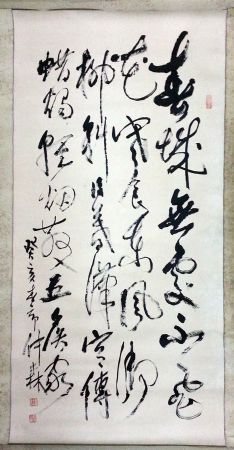 春城無處不飛
花寒食東風御
柳斜日暮漢宮傳
蠟燭輕烟散五侯家
癸亥春而仲森